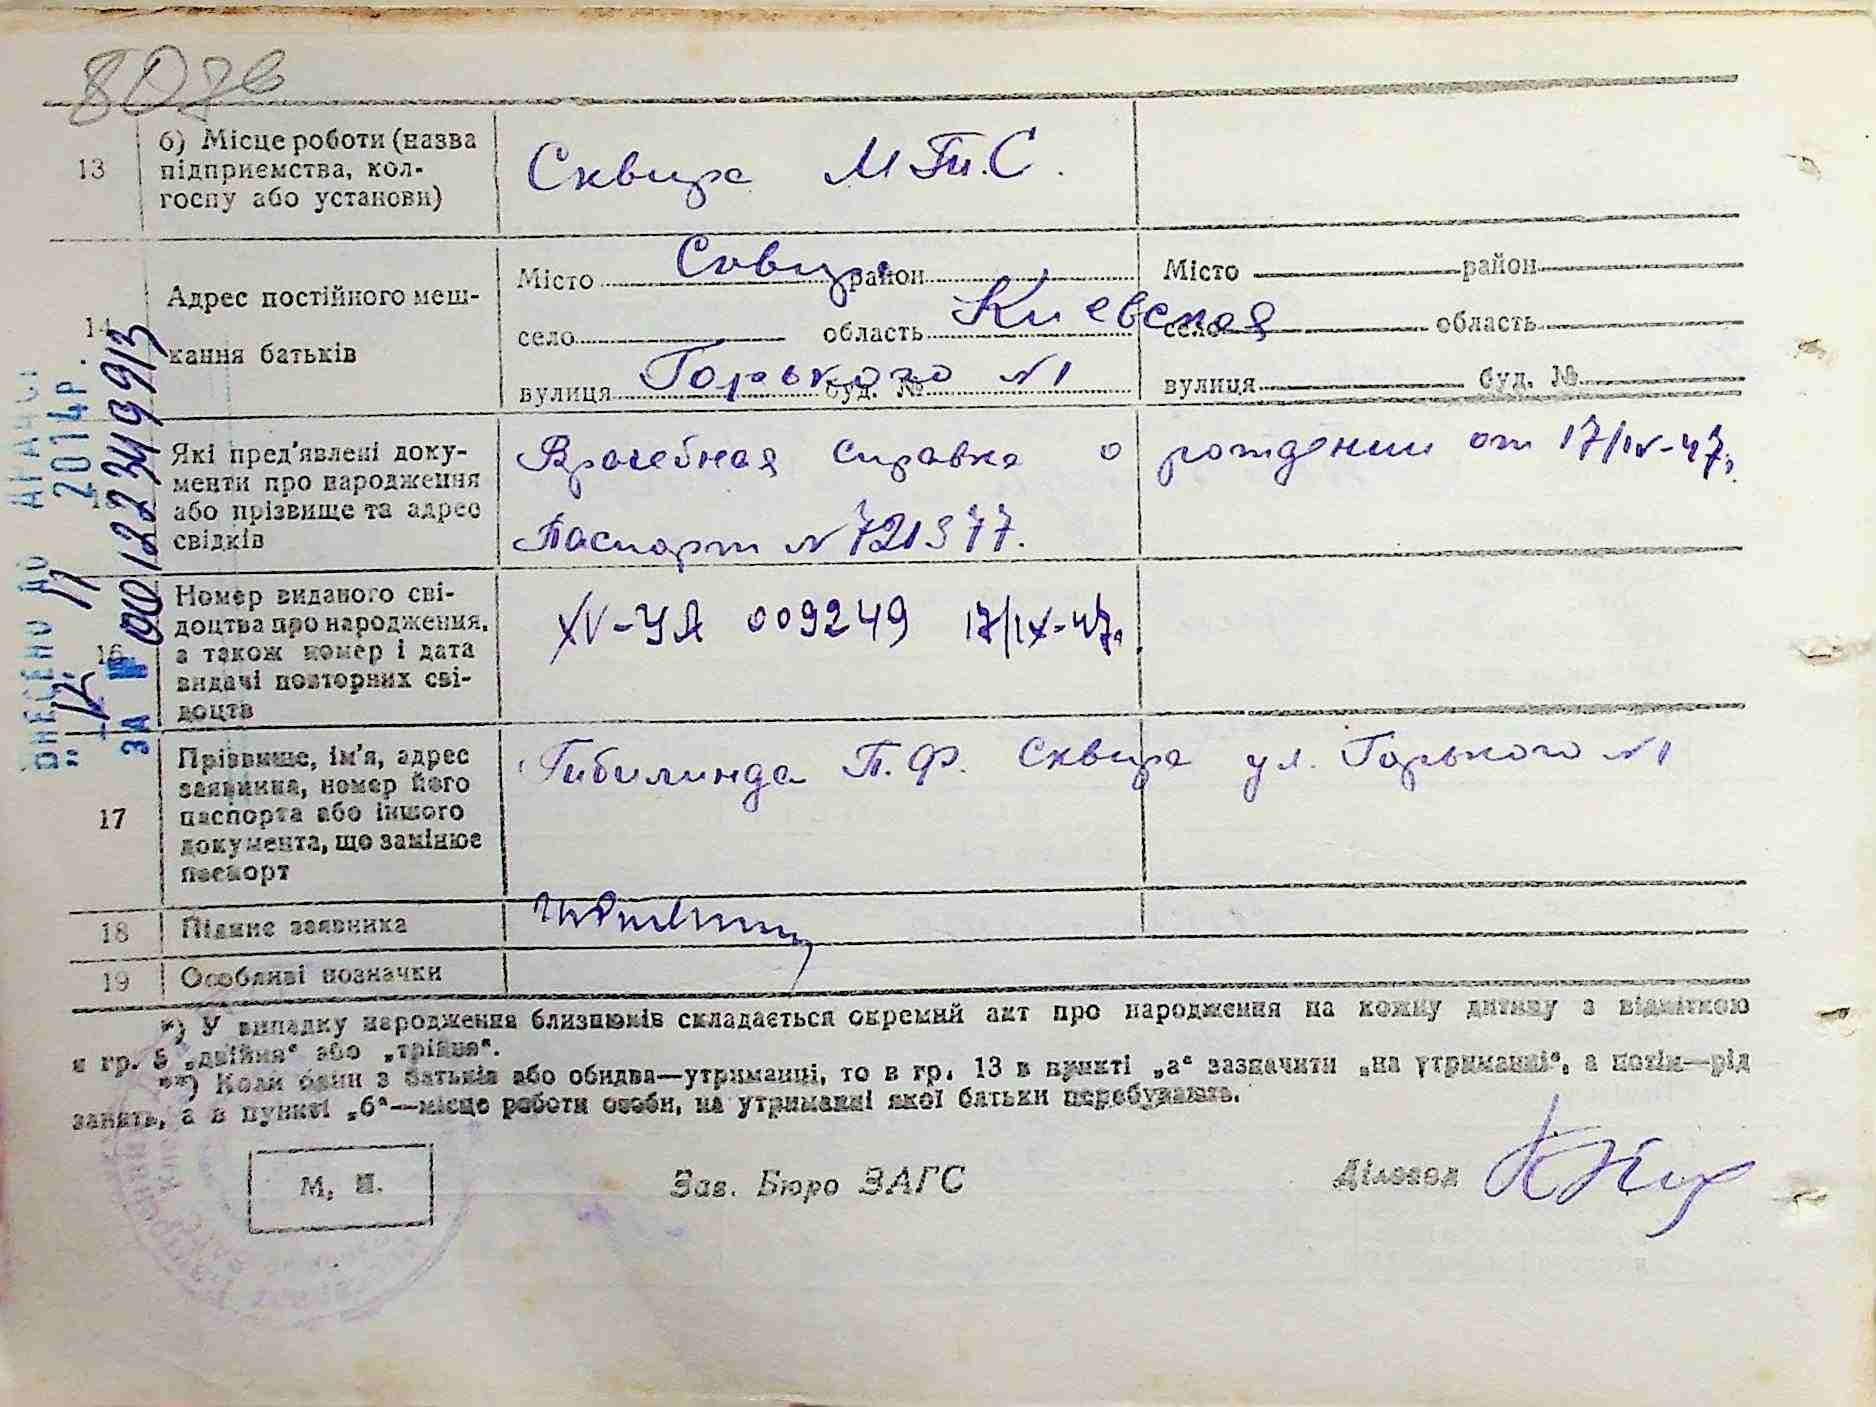 80зв
13 б) Місце роботи (назва Сквира М.Т.С.
підприємства, кол-
госпу або установи)
14 Адрес постійного меш- Місто Сквира район Місто район
село область Киевская село область
кання батьків
вулиця Горького буд. № N1 вулиця буд. №
Які пред'явлені доку- Врачебная справка о рождении от 17/IX-47г.
менти про народження
або прізвище та адрес
свідків Паспорт N 721377.
16 Номер виданого сві- XV-УА 009249 17/IX-47г.
доцтва про народження,
а також номер і дата
видачі повторних сві-
доцтв
17 Прізвище, ім'я, адрес Гибилинда П.Ф. Сквира ул. Горького N1
заявника, номер його
паспорта або іншого
документа, що замінює
паспорт
18 Підпис заявника
19 Особливі позначки
*) У випадку народження близнюків складається окремий акт про народження на кожну дитину з відміткою
в гр. 5 „двійня“ або „трійня“.
**) Коли один з батьків або обидва—утриманці, то в гр. 13 в пункті „а“ зазначити „на утриманні“, а потім—рід
занять, а в пункті „б“—місце роботи особи, на утриманні якої батьки перебувають.
М. П. Зав. Бюро ЗАГС Діловод
ВНЕСЕНО ДО ДРАЦС
"12" 11 2014р.
ЗА № 00122349913